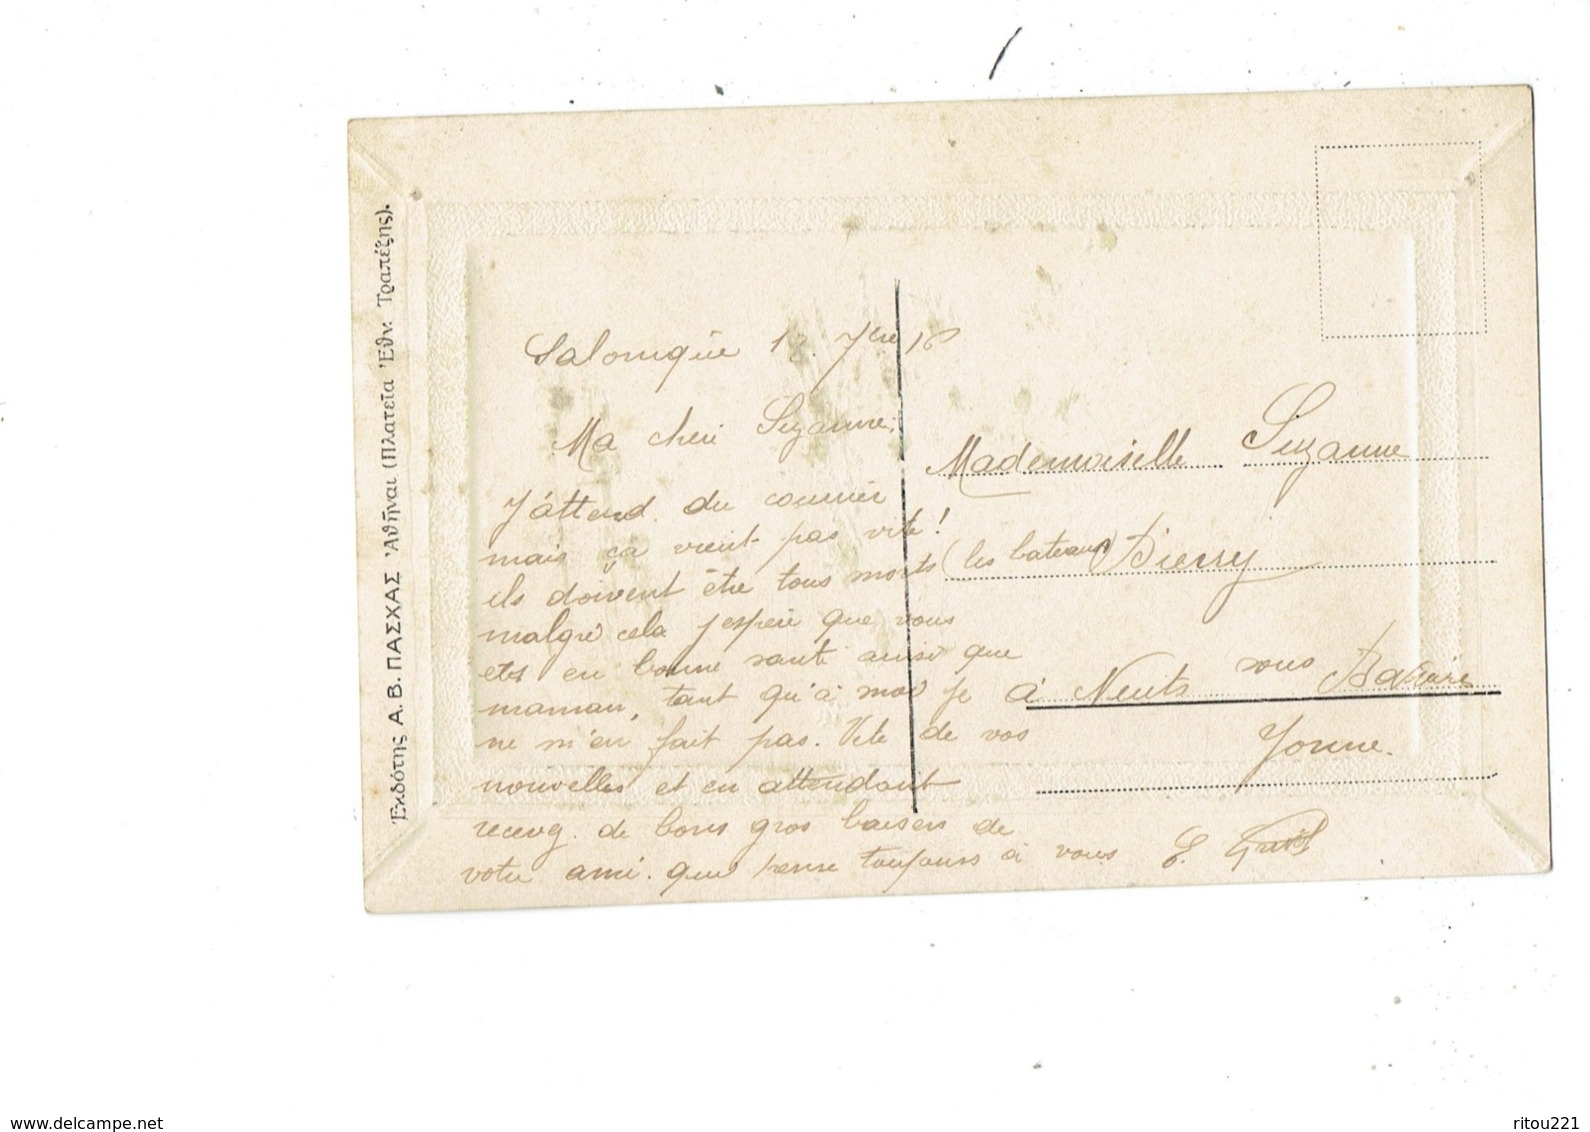 Ἐκδότης Α. Β. ΠΑΣΧΑΣ Ἀθῆναι (Πλατεῖα Ἐθν. Τραπέζης).
Salonique 12. 7bre 16
Ma cheri Suzanne,
J'attend du courrier
mais ça vient pas vite!
ils doivent être tous morts (les bateaux)
malgré cela j'espère que vous
ets en bonne santé ainsi que
maman, tant qu'à moi je
ne m'en fait pas. Vite de vos
nouvelles et en attendant
recevez de bons gros baisers de
votre ami. qui pense toujours à vous
Mademoiselle Suzanne
Pierry
à Nuits sous Ravière
Yonne.
www.delcampe.net
ritou221